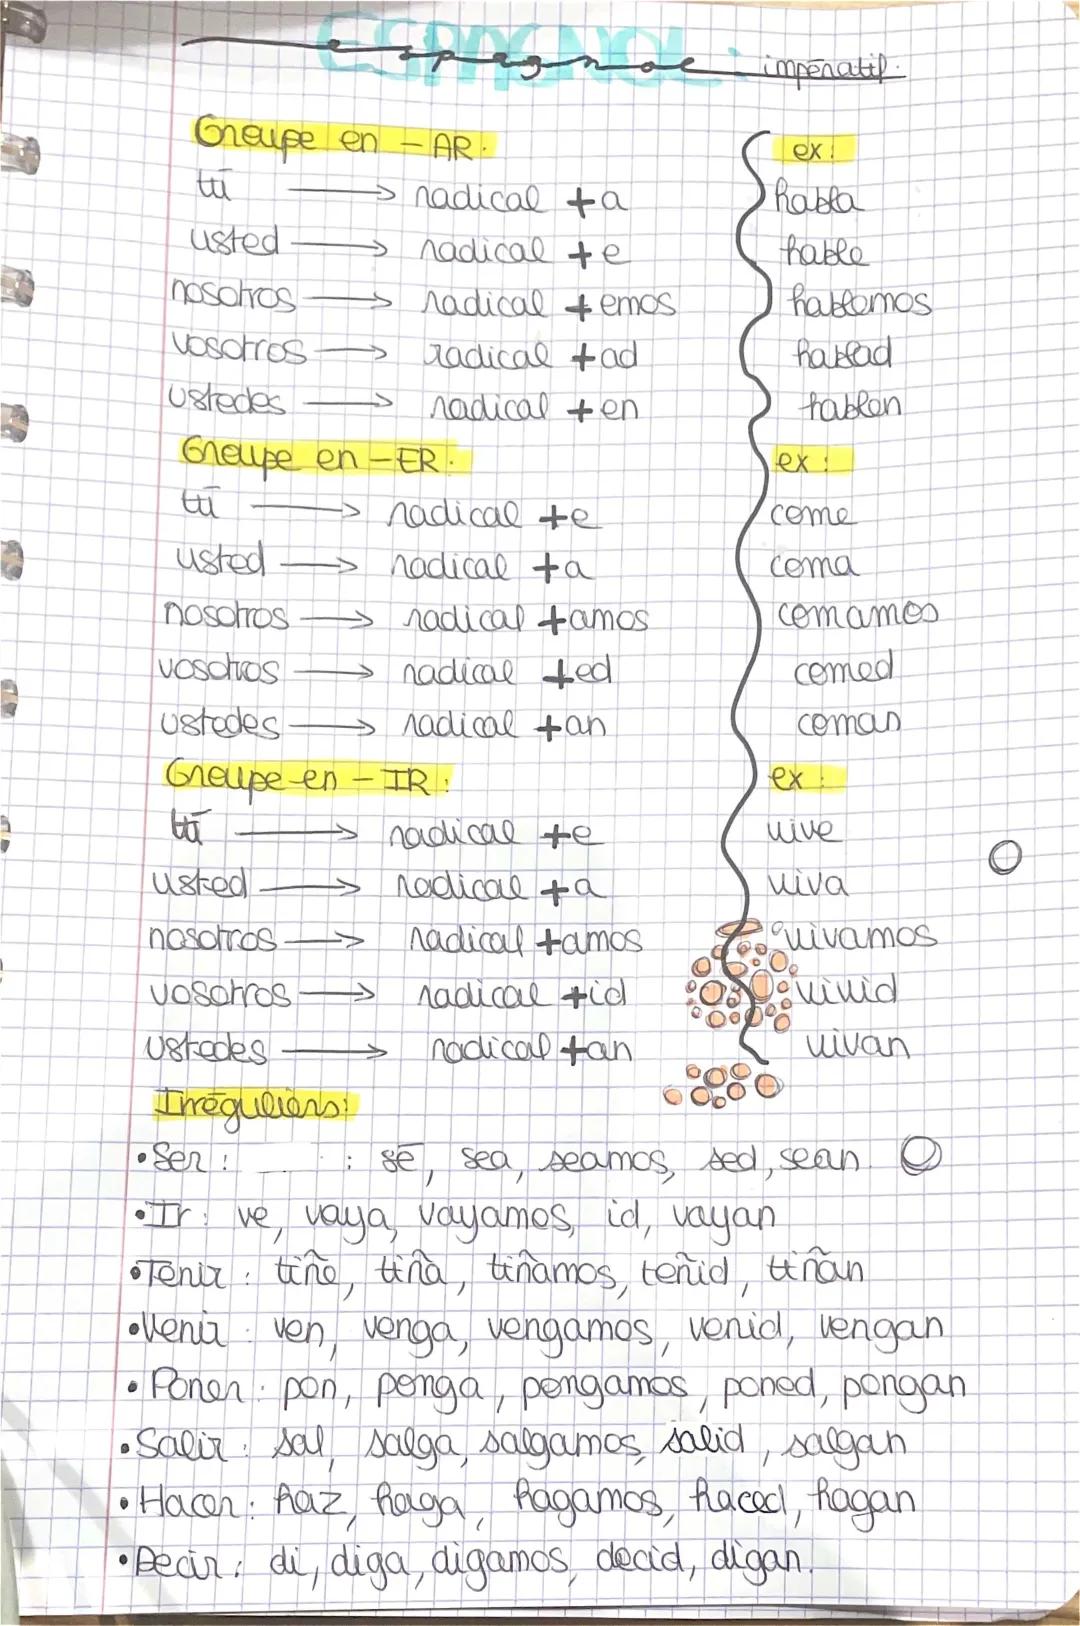 ESPAGNOL
espagnol : impératif.
Groupe en -AR. ex:
tú → radical +a habla
usted → radical +e hable
nosotros → radical +emos hablemos
vosotros → radical +ad hablad
ustedes → radical +en hablen
Groupe en -ER. ex:
tú → radical +e come
usted → radical +a coma
nosotros → radical +amos comamos
vosotros → radical +ed comed
ustedes → radical +an coman
Groupe en -IR: ex:
tú → radical +e vive
usted → radical +a viva
nosotros → radical +amos vivamos
vosotros → radical +id vivid
ustedes → radical +an vivan
Irréguliers:
•Ser: : sé, sea, seamos, sed, sean.
•Ir: ve, vaya, vayamos, id, vayan
•Tenir: tiñe, tiña, tiñamos, teñid, tiñan
•Venir: ven, venga, vengamos, venid, vengan
•Poner: pon, ponga, pongamos, poned, pongan
•Salir: sal, salga, salgamos, salid, salgan
•Hacer: haz, haga, hagamos, haced, hagan
•Decir: di, diga, digamos, decid, digan.